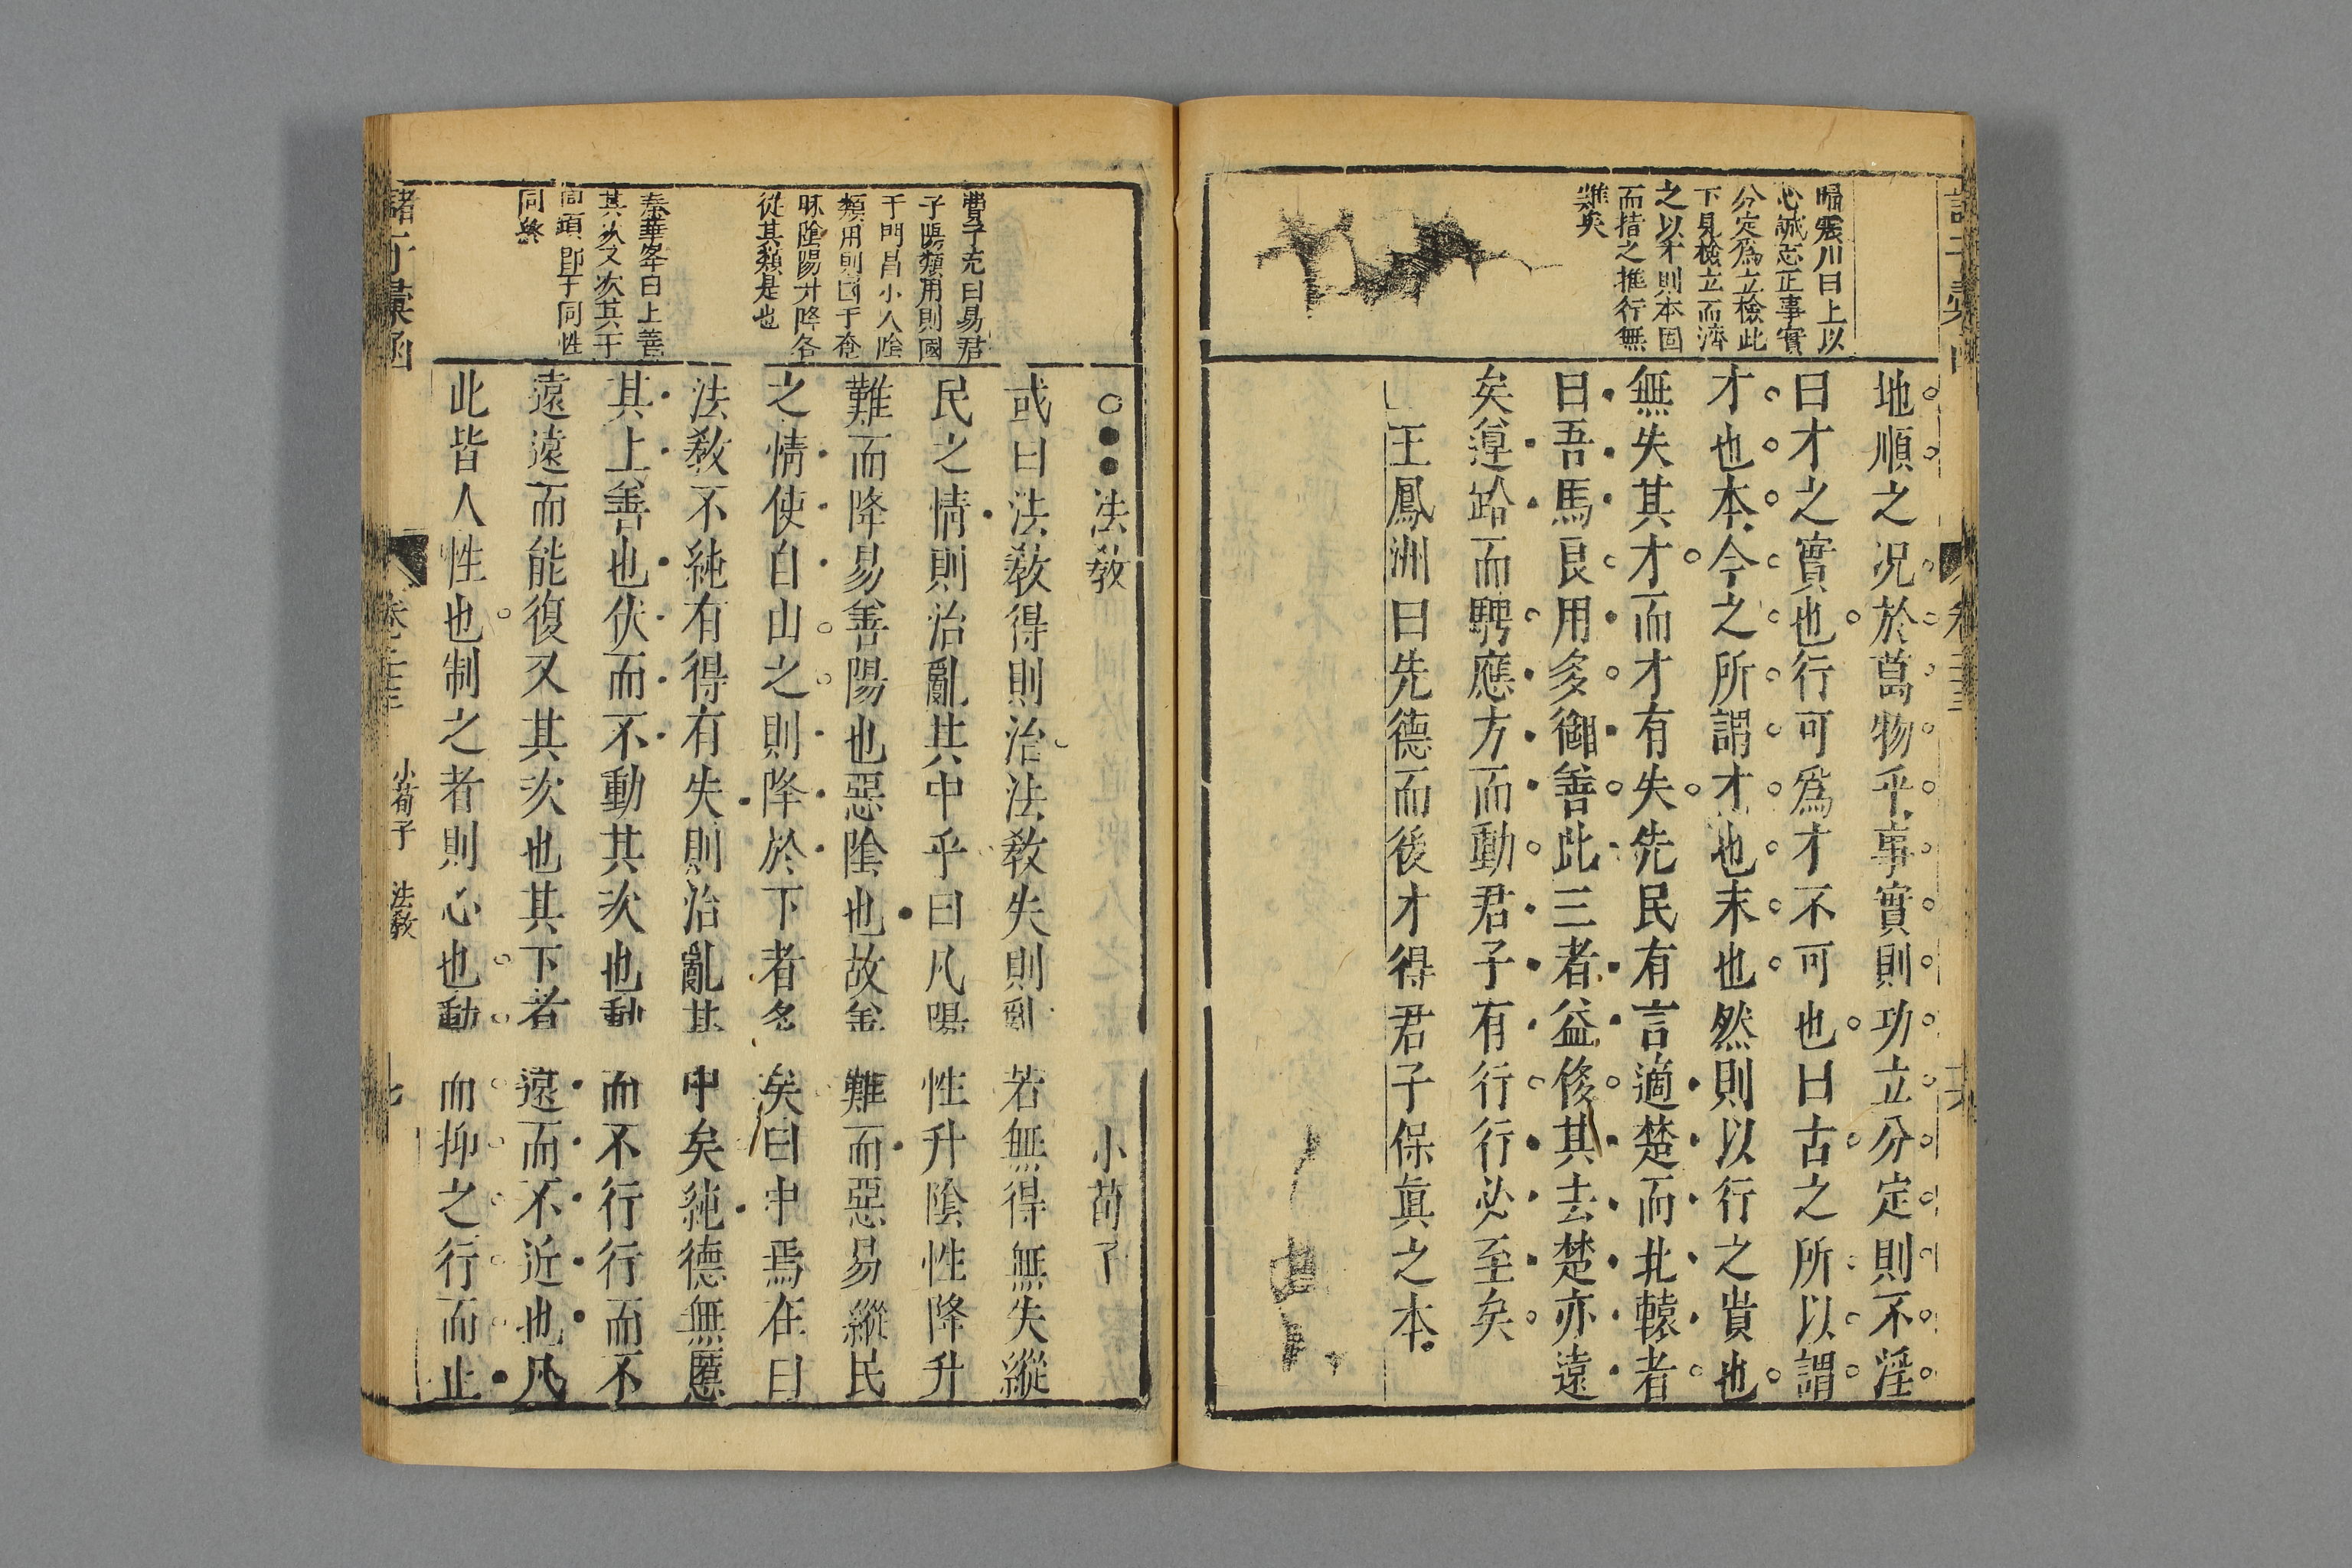 歸震川曰上以
心誠志正事實
分定爲立檢此
下見檢立而濟
之以才則本固
而措之推行無
難矣
地順之况於萬物乎事實則功立分定則不淫
曰才之實也行可爲才不可也曰古之所以謂
才也本今之所謂才也末也然則以行之貴也
無失其才而才有失先民有言適楚而北轅者
曰吾馬良用多御善此三者益俊其去楚亦遠
矣遵路而騁應方而動君子有行行必至矣
王鳳洲曰先德而後才得君子保眞之本
曹子充曰易君
子陽類用則國
于門昌小人陰
類用則國于
昧陰陽升降各
從其類是也
秦華峯曰上善
其次又次其于
同類卽于同性
同與
法敎 小荀子
或曰法敎得則治法敎失則亂若無得無失縱
民之情則治亂其中乎曰凡陽性升陰性降升
難而降易善陽也惡陰也故善難而惡易縱民
之情使自由之則降於下者多矣曰中焉在曰
法敎不純有得有失則治亂其中矣純德無慝
其上善也伏而不動其次也動而不行行而不
遠遠而能復又其次也其下者遠而不近也凡
此皆人性也制之者則心也動而抑之行而止
諸子彙函 卷三十三 小荀子 法敎 七